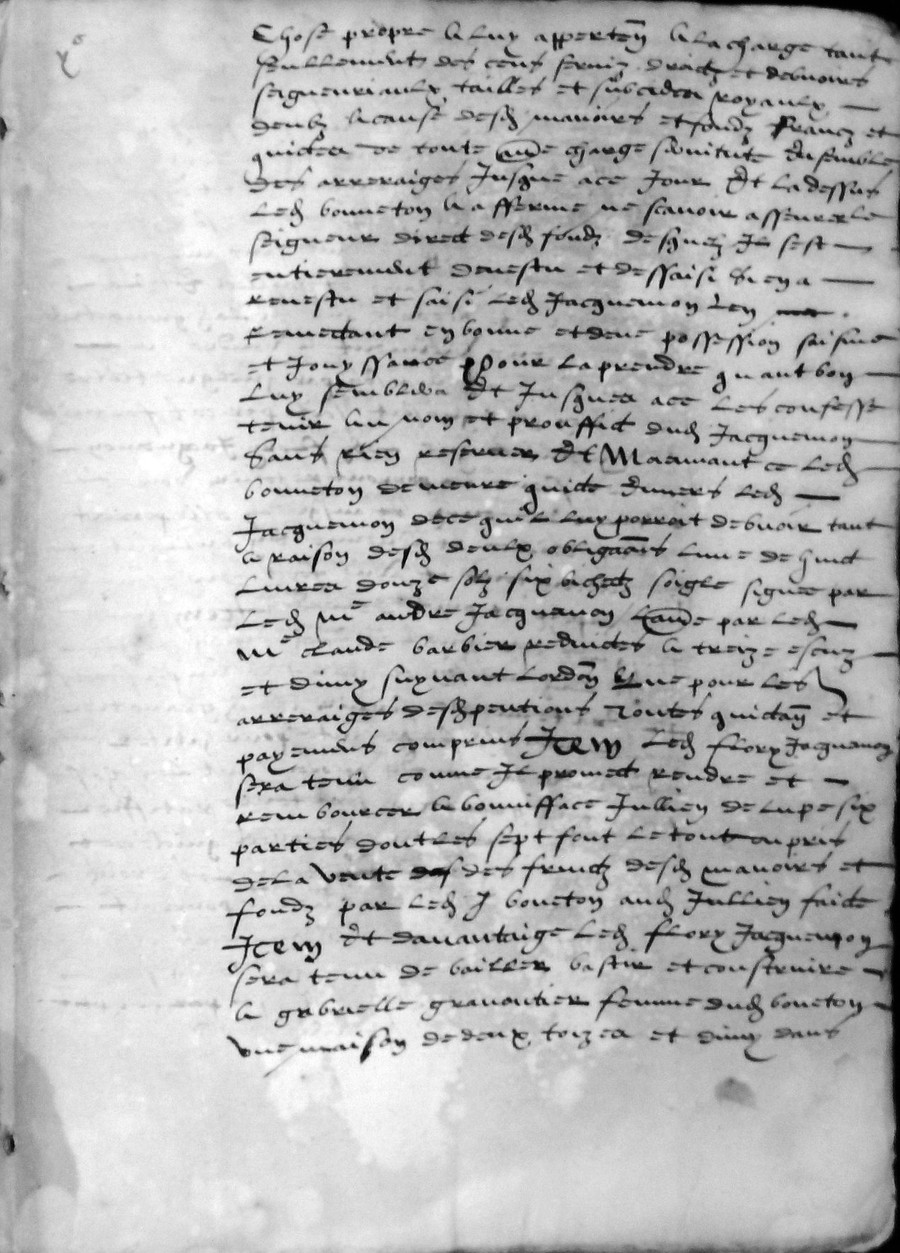 x^e
Chose propre a luy apperten~ a la charge tant
seullement des cens serviz droictz et debvoirs
seigneuriaulx tailles et subcides royaulx
deubz a cause desd manoirs et fondz francz et
quictes de toute au~e charge servitute ensemble
des arreraiges Jusque a ce Jour Et la dessus
Led bonneton a afferme ne scavoir asseurer le
seigneur direct desd fondz desquelz Il sest
entierement devestu et dessaisi Et en a
revestu et saisi Led Jacquemon Len
remectant en bonne et deue possession saisine
et Jouyssance pour la prendre quant bon
Luy semblera Et Jusques a ce les confesse
tenir au nom et prouffict dud Jacquemon
Sans rien reserver Et Moennant ce Led
bonneton demeure quicte envers Led
Jacquemon de ce quil luy porroit debvoir tant
a raison desd deulx obliga~ons lune de huict
Livres douze solz six bichetz soigle signee par
Led m^e andre Jacquemon Lau~e par Led
m^e claude barbier reduictes a treize escuz
et dimy suyvant Lordon~ Que pour les
arreraiges desd pentions Toutes quictan~ et
payemens comprins Item Led flory Jacquemon
sera tenu comme Il promect rendre et
rembourcer a bonifface Jullien de lupe six
parties dont les sept font le tout du pris
de la vente des fruictz desd manoirs et
fondz par Led J boneton aud Jullien faicte
Item Et davantaige Led flory Jacquemon
sera tenu de bailler bastir et construire
a gabrielle gravoutier femme dud boneton
une maison de deux toizes et dimy dans